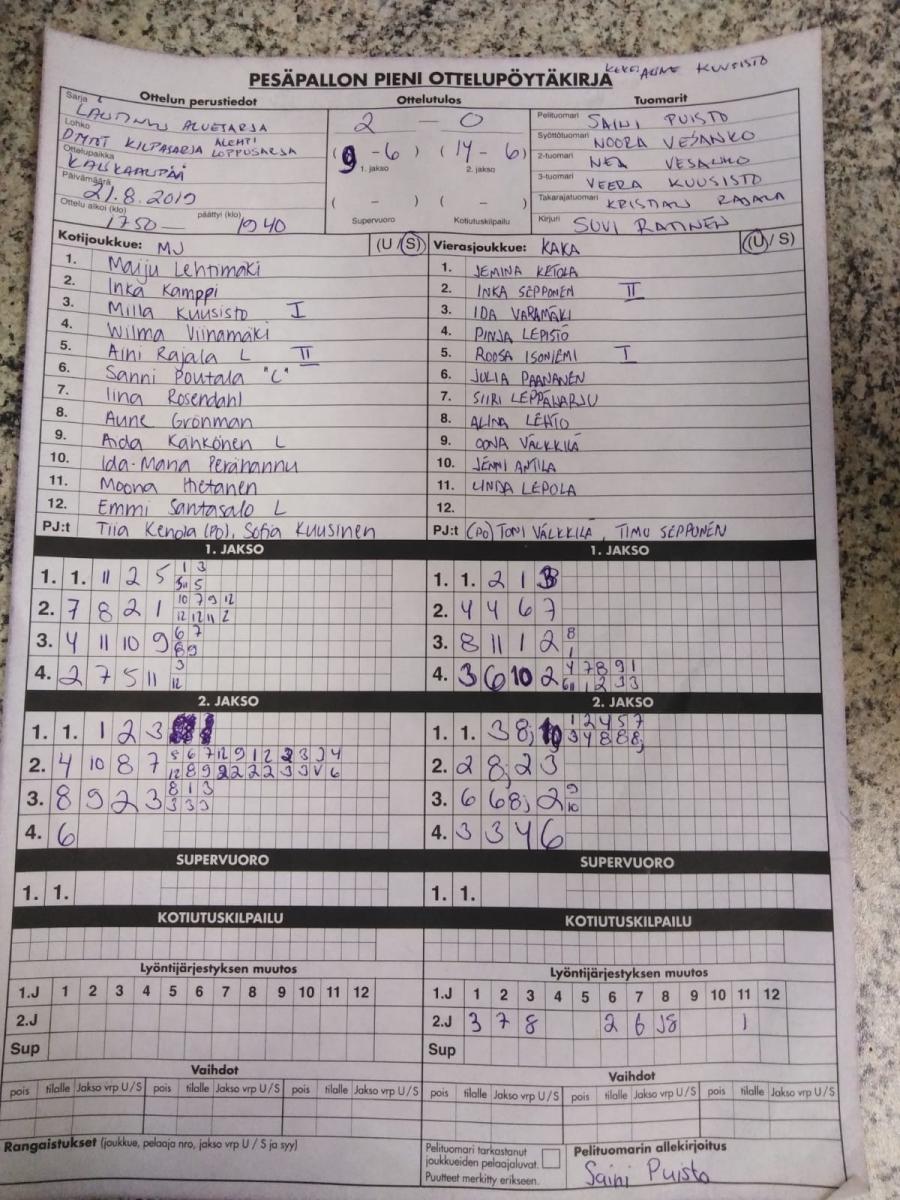 KUUSISTO
PESÄPALLON PIENI OTTELUPÖYTÄKIRJA
Ottelun perustiedot
Sarja
Lohko
DMNT KILPASARJA ALEMPI LOPPUSARJA
Ottelupaikka
KALSKAANPÄÄ
Päivämäärä
21.8.2019
Ottelu alkoi (klo) 1750 — päättyi (klo) 1940
Ottelutulos
2 — 0
(9 - 6) (14 - 6)
1. jakso 2. jakso
( - ) ( - )
Supervuoro Kotiutuskilpailu
Tuomarit
Pelituomari SAINI PUISTO
Syöttötuomari NOORA VESANKO
2-tuomari NEA VESANKO
3-tuomari VEERA KUUSISTO
Takarajatuomari KRISTIAN RAJALA
Kirjuri SUVI RATINEN
Kotijoukkue: MJ (U / S)
1. Maiju Lehtimäki
2. Inka Kamppi
3. Milla Kuusisto I
4. Wilma Viinamäki
5. Aini Rajala L II
6. Sanni Poutala "C"
7. Iina Rosendahl
8. Aune Grönman
9. Aida Kankönen L
10. Ida-Maria Perähannu
11. Moona Hietanen
12. Emmi Santasalo L
PJ:t Tiia Kenola (PO), Sofia Kuusinen
Vierasjoukkue: KAKA (U / S)
1. JEMINA KETOLA
2. INKA SEPPONEN II
3. IDA VARAMÄKI
4. PINJA LEPISTÖ
5. ROOSA ISONIEMI I
6. JULIA PAANANEN
7. SIIRI LEPPÄHARJU
8. ALINA LEHTO
9. OONA VÄLKKILÄ
10. JENNI ANTILA
11. LINDA LEPOLA
12.
PJ:t (PO) TONI VÄLKKILÄ, TIMO SEPPONEN
1. JAKSO
1. 1. 11 2 5 1 3
5 11 5
2. 7 8 2 1 10 7 9 12
12 12 11 2
3. 4 11 10 9 6 7
8 9
4. 2 7 5 11 3
12
2. JAKSO
1. 1. 1 2 3
2. 4 10 8 7 5 6 7 12 9 1 2 2 3 3 4
12 8 9 2 2 2 2 3 3 V 6
3. 8 9 2 3 8 1 3
3 3 3
4. 6
SUPERVUORO
1. 1.
KOTIUTUSKILPAILU
1. JAKSO
1. 1. 2 1 3
2. 4 4 6 7
3. 8 11 1 2 8
1
4. 3 6 10 2 4 7 8 9 1
6 11 1 2 3 3
2. JAKSO
1. 1. 3 8; 10 1 2 4 5 7
3 4 8 8 8;
2. 2 8; 2 3
3. 6 6 8; 2 9
10
4. 3 3 4 6
SUPERVUORO
1. 1.
KOTIUTUSKILPAILU
Lyöntijärjestyksen muutos
1.J 1 2 3 4 5 6 7 8 9 10 11 12
2.J
Sup
Vaihdot
pois tilalle Jakso vrp U / S pois tilalle Jakso vrp U / S pois tilalle Jakso vrp U / S
Lyöntijärjestyksen muutos
1.J 1 2 3 4 5 6 7 8 9 10 11 12
2.J 3 7 8 2 6 J8 1
Sup
Vaihdot
pois tilalle Jakso vrp U / S pois tilalle Jakso vrp U / S pois tilalle Jakso vrp U / S
Rangaistukset (joukkue, pelaaja nro, jakso vrp U / S ja syy)
Pelituomari tarkastanut
joukkueiden pelaajaluvat.
Puutteet merkitty erikseen.
Pelituomarin allekirjoitus
Saini Puisto